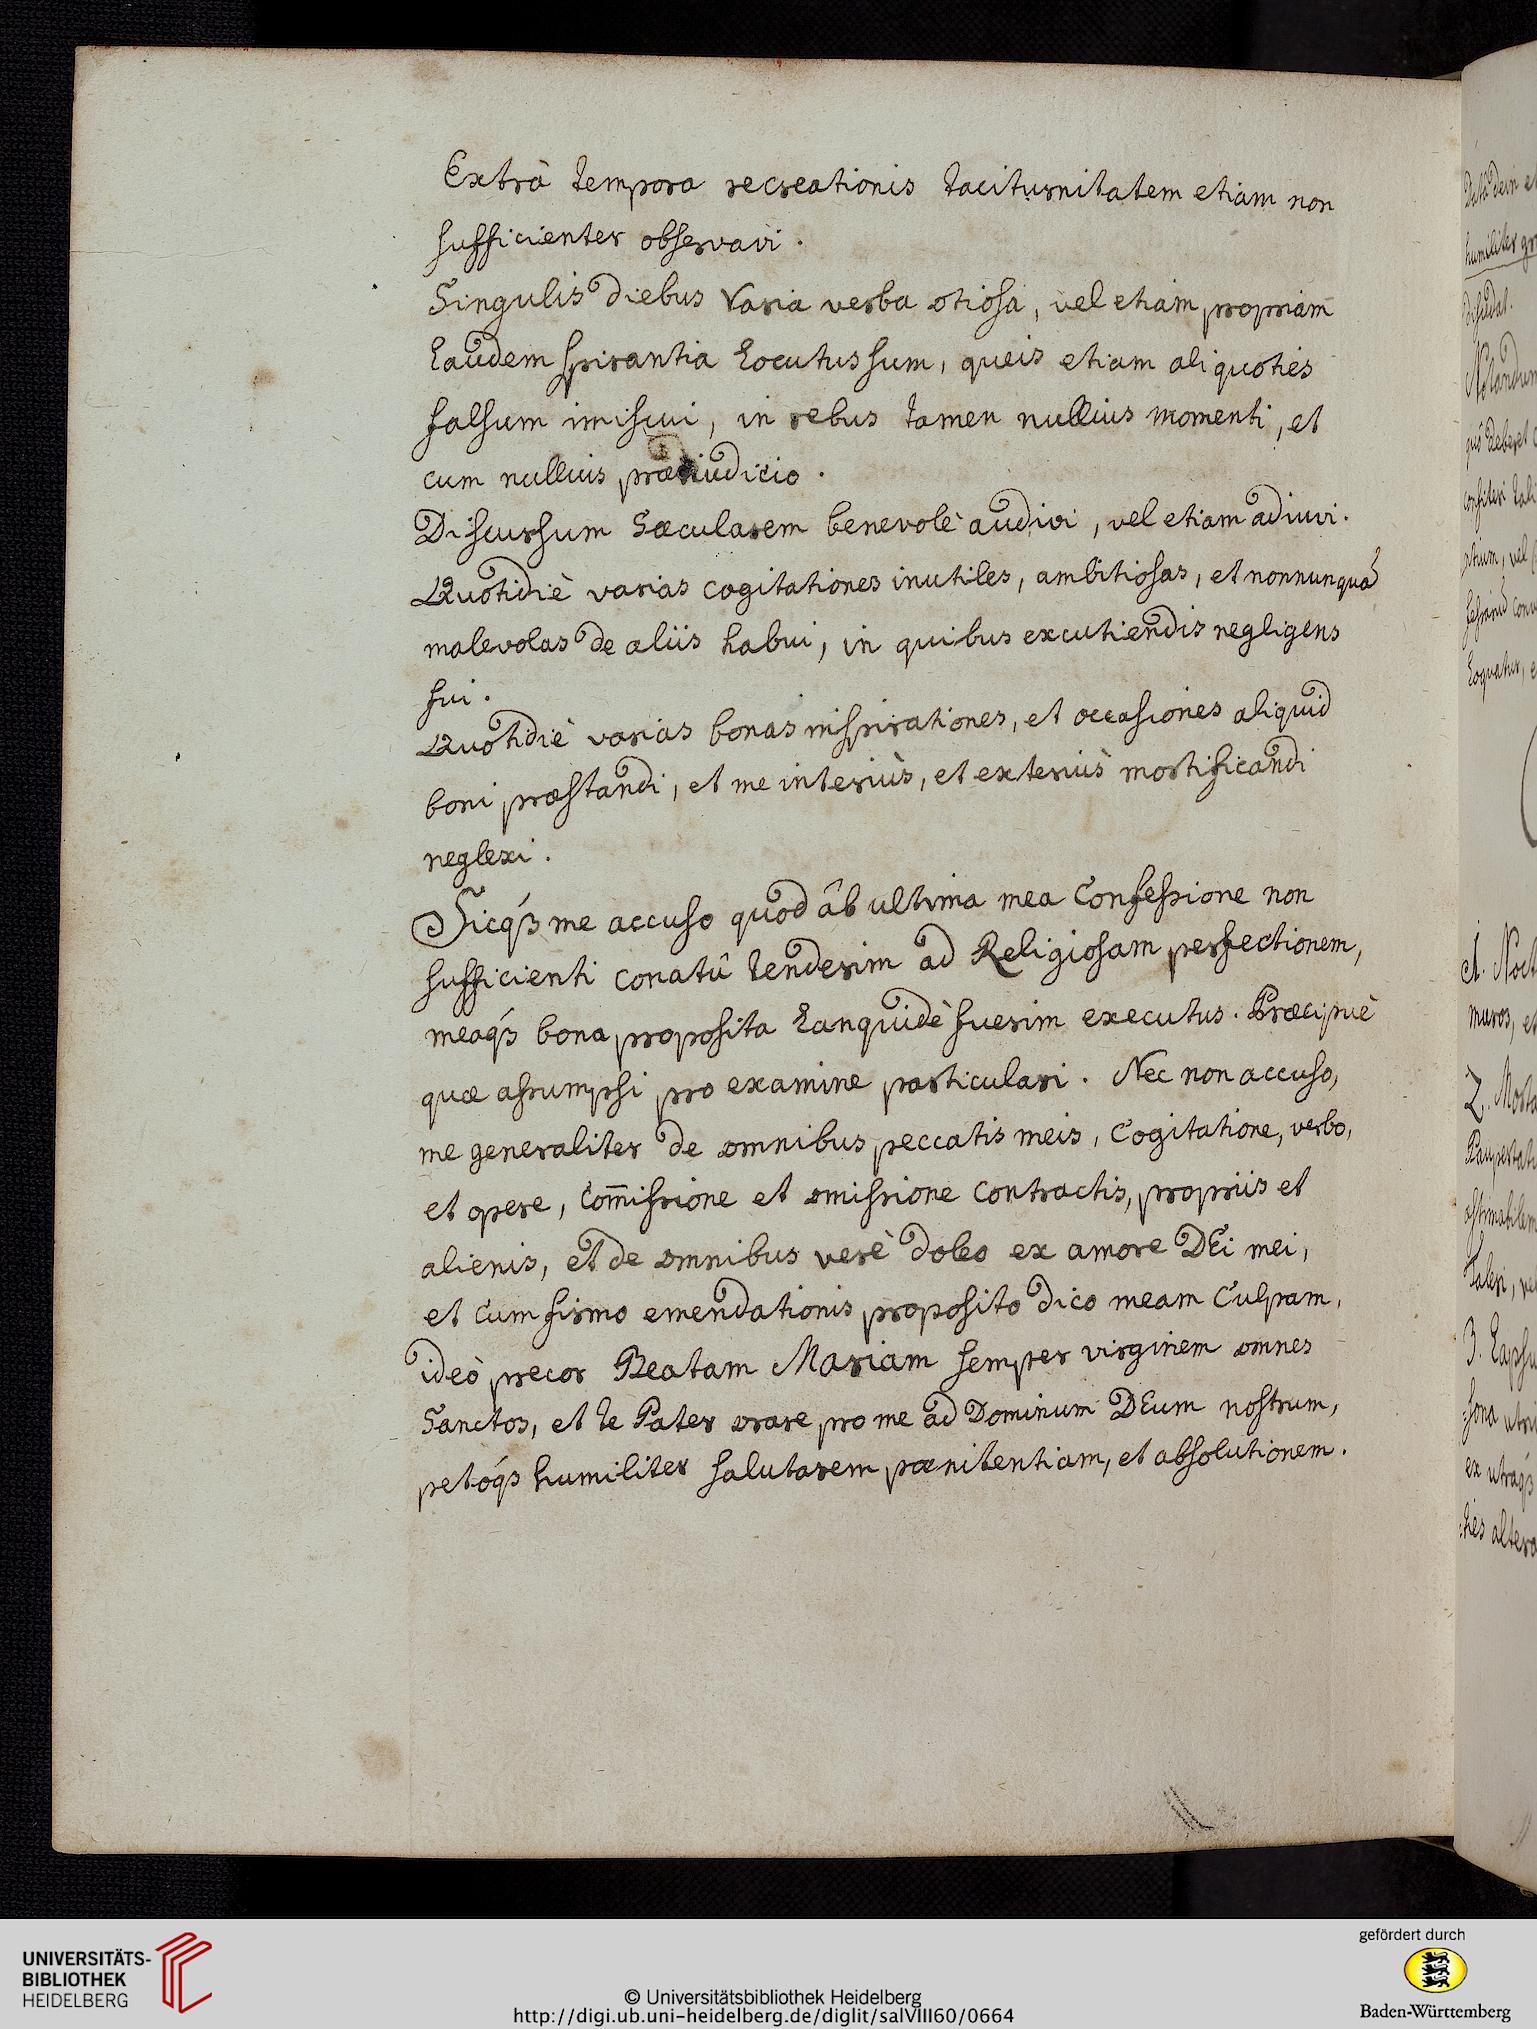 Extrà tempora recreationis taciturnitatem etiam non
sufficienter observavi.
Singulis diebus varia verba otiosa, vel etiam propriam
laudem spirantia locutus sum, queis etiam aliquoties
falsum imiscui, in rebus tamen nullius momenti, et
cum nullius præiudicio.
Discursum Sæcularem benevolè audivi, vel etiam adiuvi.
Quotidiè varias cogitationes inutiles, ambitiosas, et nonnunquã
malevolas de aliis habui, in quibus excutiendis negligens
fui.
Quotidiè varias bonas inspirationes, et occasiones aliquid
boni præstandi, et me interiùs, et exteriùs mortificandi
neglexi.
Sicq́3 me accuso quod âb ultima mea Confessione non
sufficienti conatû tenderim ad Religiosam perfectionem,
meaq́3 bona proposita lanquidè fuerim executus. Præcipuè
quæ assumpsi pro examine particulari. Nec non accuso,
me generaliter de omnibus peccatis meis, Cogitatione, verbo,
et opere, Com̄issione et omissione contractis, propriis et
alienis, et de omnibus verè doleo ex amore DEi mei,
et cum firmo emendationis proposito dico meam Culpam,
ideò precor Beatam Mariam semper virginem omnes
Sanctos, et te Pater orare pro me ad Dominum DEum nostrum,
petoq́3 humiliter salutarem pœnitentiam, et absolutionem.
humiliter
1. Noct
muros, et
2.
3.
ex utraq́3
UNIVERSITÄTS-
BIBLIOTHEK
HEIDELBERG
© Universitätsbibliothek Heidelberg
http://digi.ub.uni-heidelberg.de/diglit/salVIII60/0664
gefördert durch
Baden-Württemberg